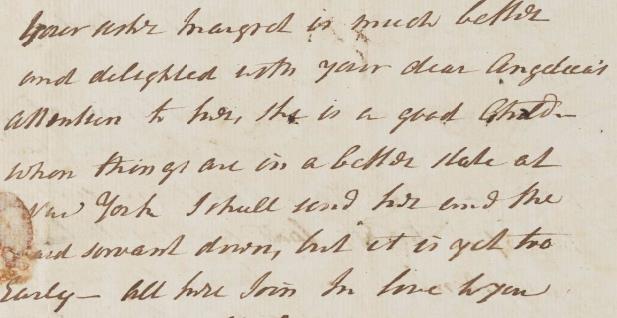 your sister Margret is much better
and delighted with your dear Angelica's
Attention to her, she is a good Child –
when things are in a better state at
New York I shall send her and the
servant down, but it is yet too
Early – All here Join In love to you